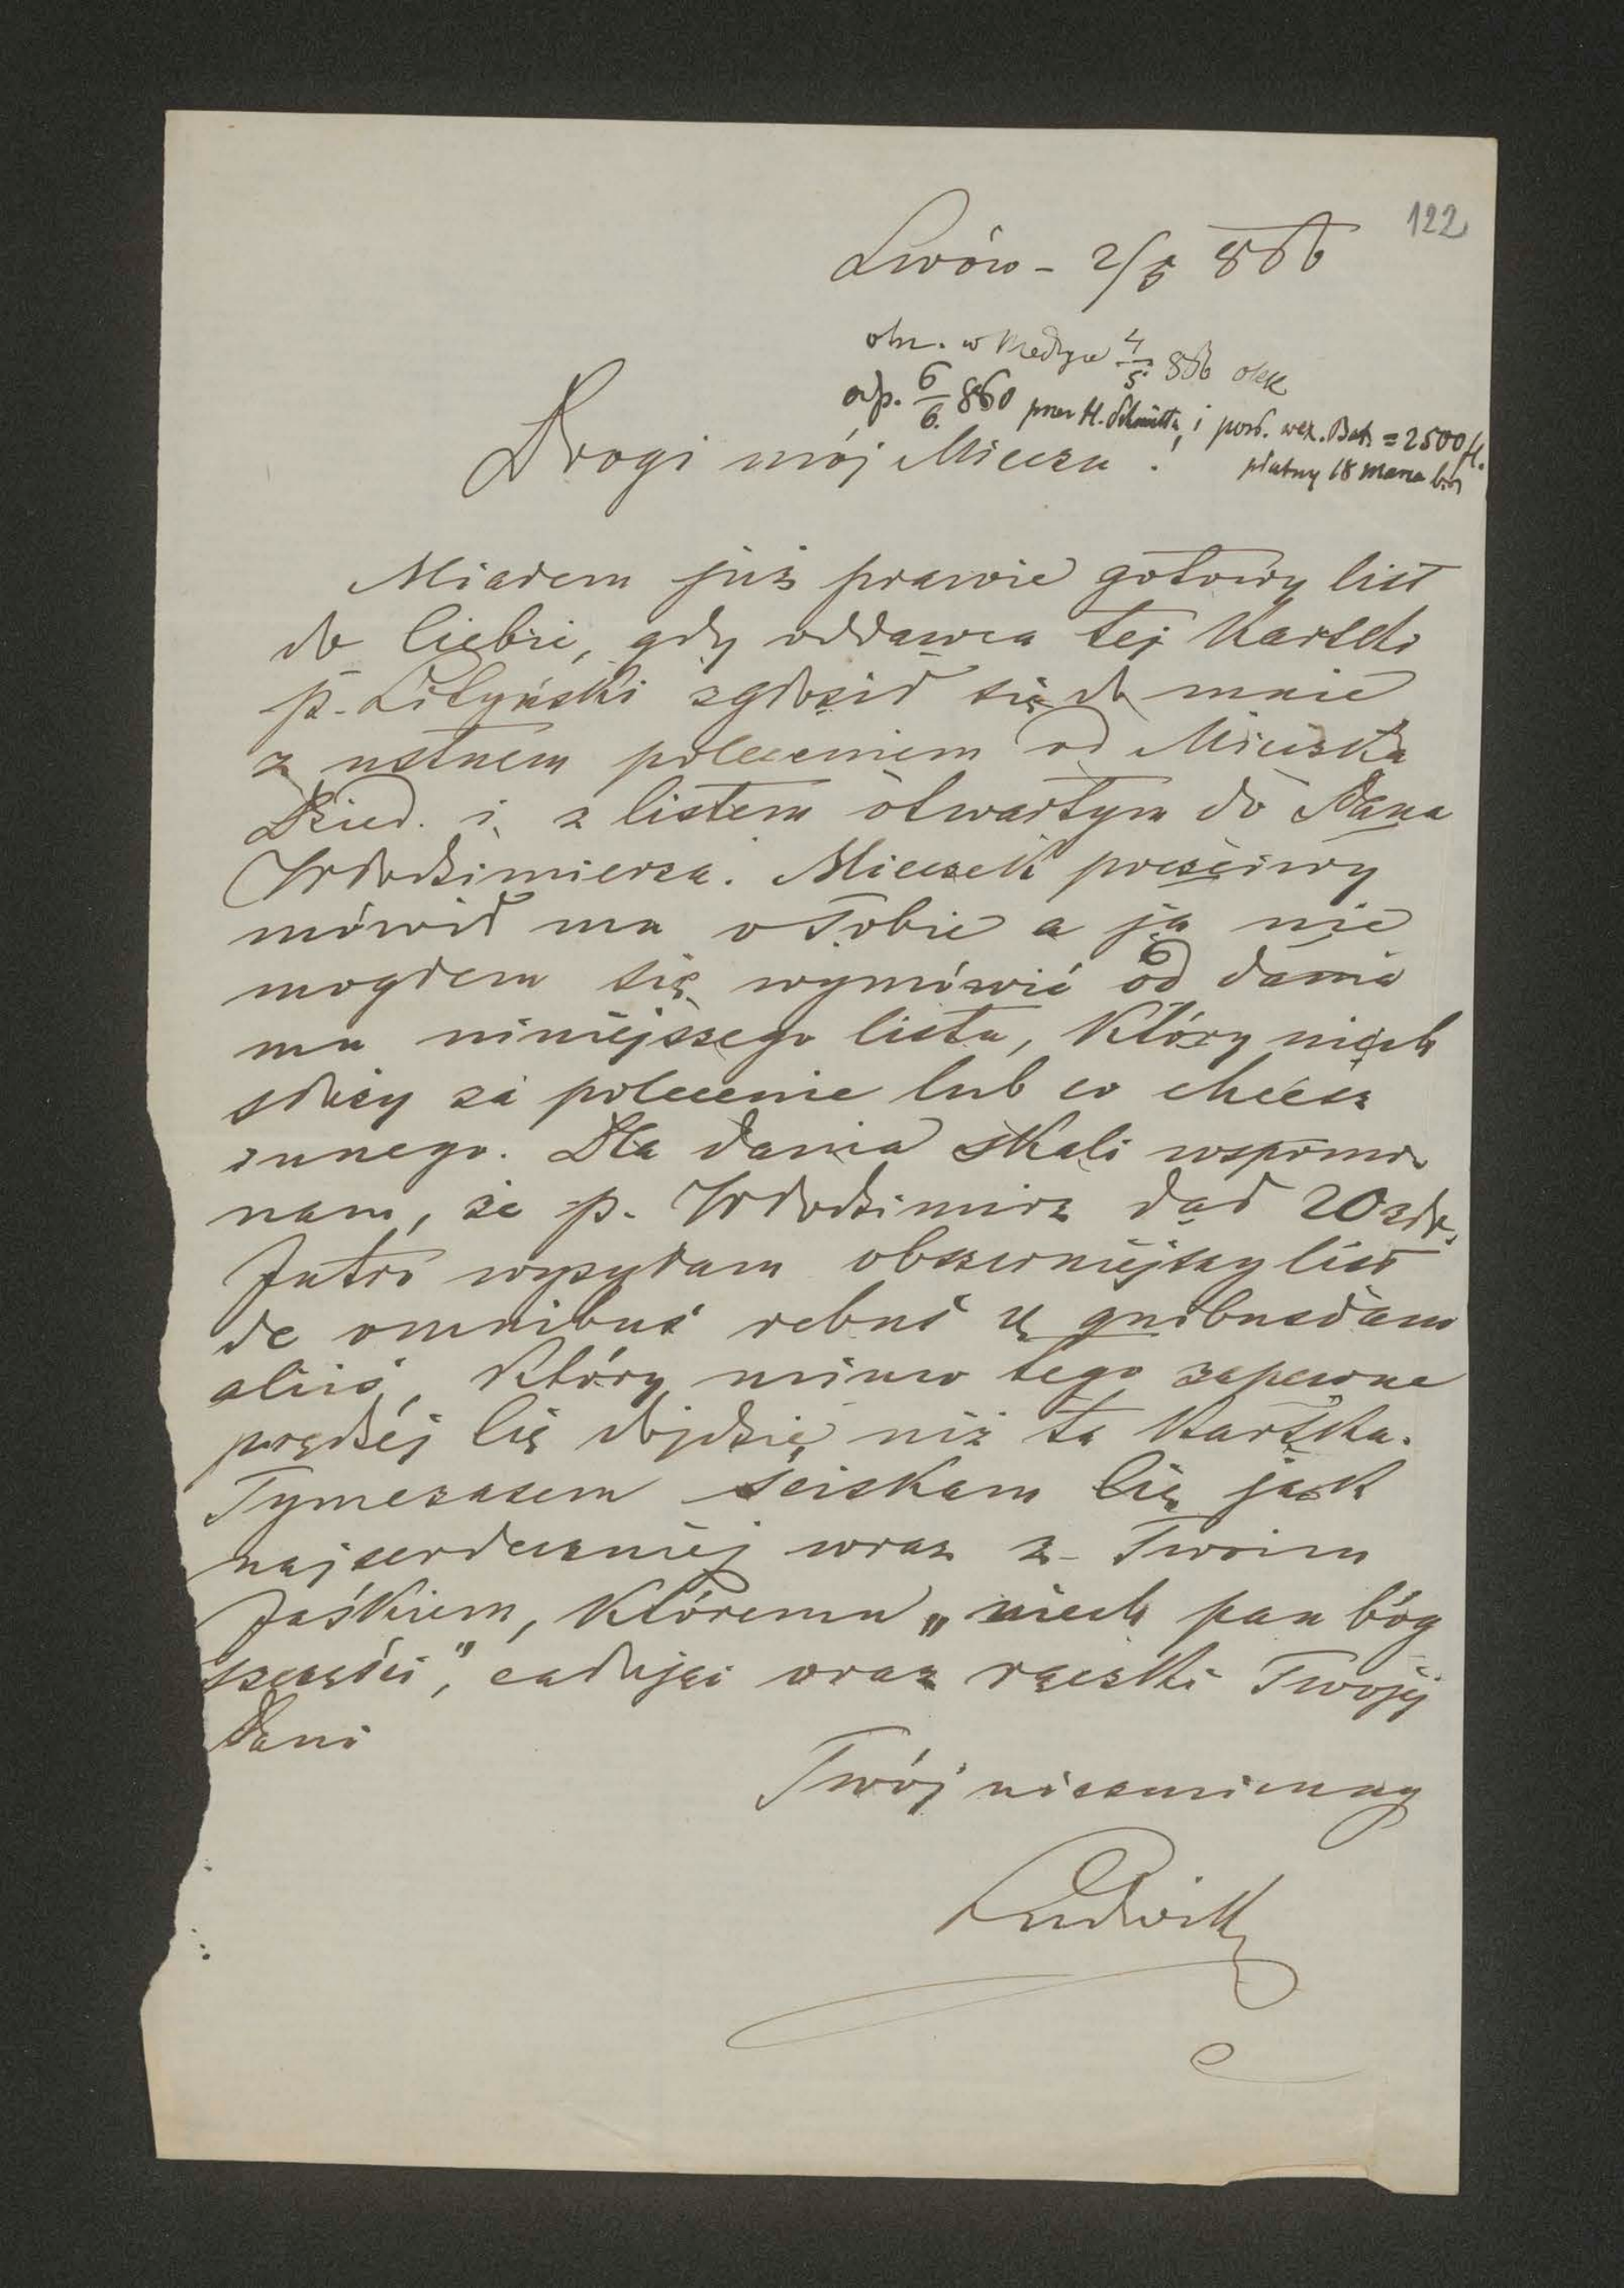 122
Lwów - 2/5 866
otrz. w Medyce 4/5 866
odp. 6/6. 860 przez H. Schmitta, i pos. wex. Bat. = 2500 fl.
płatny 18 marca b.r.
Drogi mój Mieczu!
Miałem już prawie gotowy list
do Ciebie, gdy oddawca tej kartki
p. Lityński zgłosił się do mnie
z ustnem poleceniem od Mieczka
Dzied. i z listem otwartym do Pana
Włodzimierza. Mieczek poczciwy
mówił mu o Tobie a ja nie
mogłem się wymówić od dania
mu niniejszego listu, który niech
służy za polecenie lub co chcesz
innego. Dla dania skali wspomi-
nam, że p. Włodzimirz dał 20 złr.
Jutro wysyłam obszerniejszy list
de omnibus rebus & quibusdam
aliis, który mimo tego zapewne
prędzéj Cię dojdzie niż ta kartka.
Tymczasem ściskam Cię jak
najserdeczniéj wraz z Twoim
Jaśkiem, któremu „niech pan bóg
szczęści", całując oraz rączki Twojéj
Pani
Twój niezmienny
Ludwik